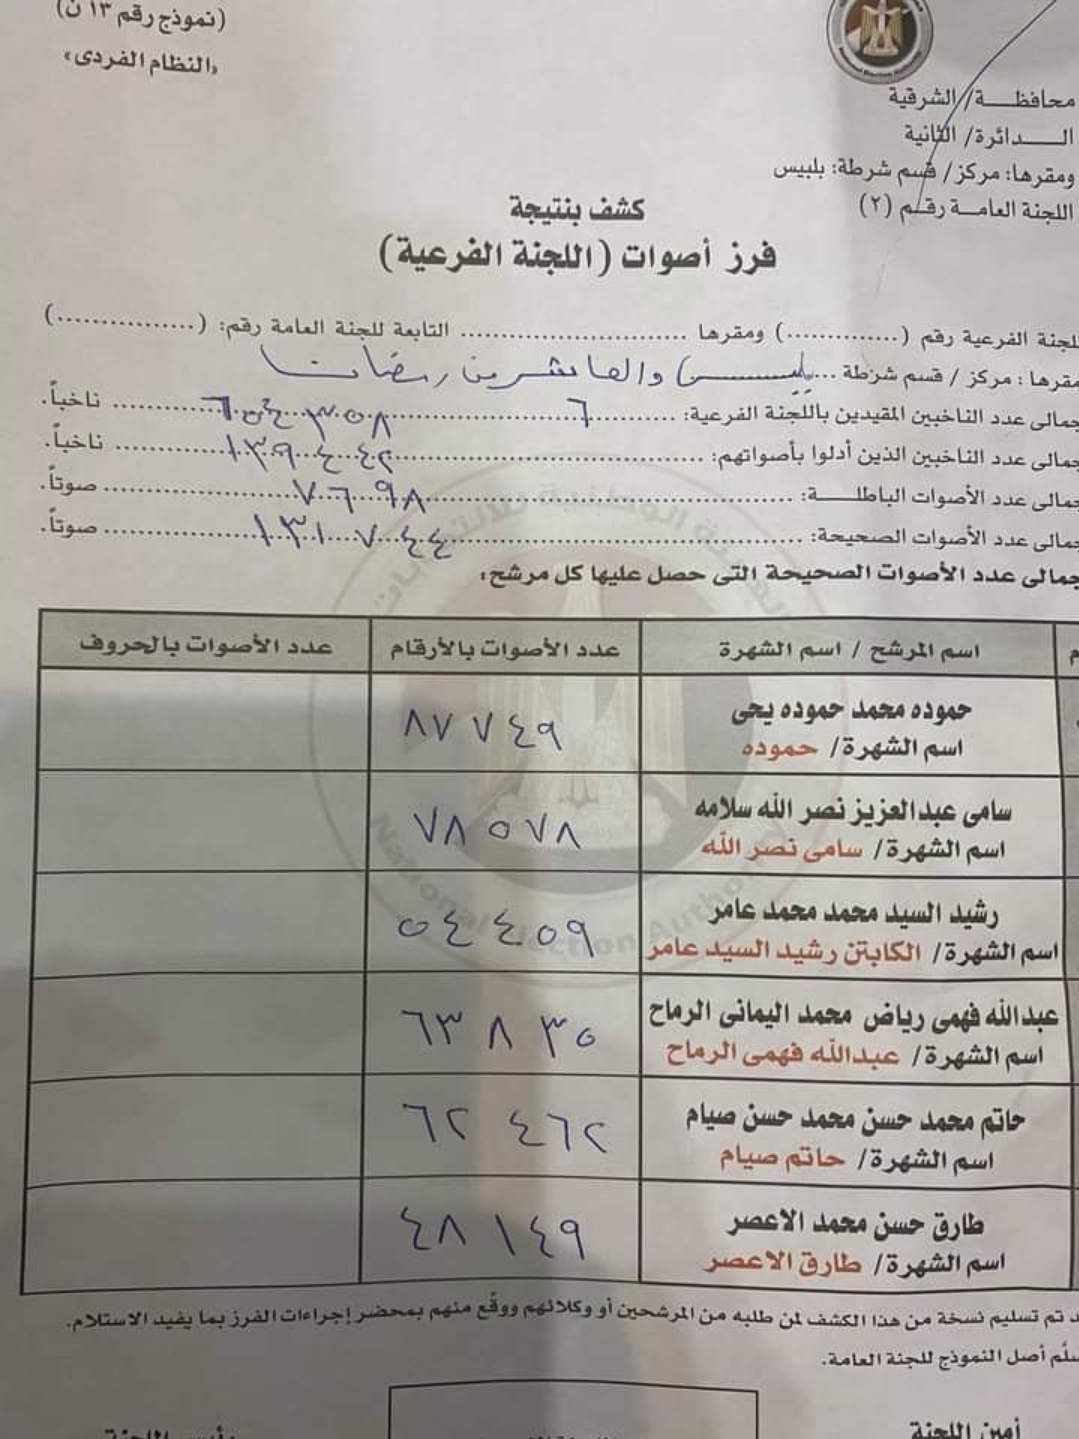 (نموذج رقم ١٣ ن)
«النظام الفردى»
محافظة/ الشرقية
الدائرة/ الثانية
ومقرها: مركز/ قسم شرطة: بلبيس
اللجنة العامة رقم (٢)
كشف بنتيجة
فرز أصوات (اللجنة الفرعية)
لجنة الفرعية رقم (..............) ومقرها .............................. التابعة للجنة العامة رقم: (................)
مقرها: مركز / قسم شرطة ... بلبيس والعاشر من رمضان
جمالى عدد الناخبين المقيدين باللجنة الفرعية: ............ ٦٥٤٣٥٨ ............ ناخباً.
جمالى عدد الناخبين الذين أدلوا بأصواتهم: ............ ١٣٩٤٤٢ ............ ناخباً.
جمالى عدد الأصوات الباطلة: ............ ٧٦٩٨ ............ صوتاً.
جمالى عدد الأصوات الصحيحة: ............ ١٣١٧٤٤ ............ صوتاً.
جمالى عدد الأصوات الصحيحة التى حصل عليها كل مرشح:
م اسم المرشح / اسم الشهرة عدد الأصوات بالأرقام عدد الأصوات بالحروف
حموده محمد حموده يحى
اسم الشهرة/ حموده ٨٧٧٤٩
سامى عبدالعزيز نصر الله سلامه
اسم الشهرة/ سامى نصر الله ٧٨٥٧٨
رشيد السيد محمد محمد عامر
اسم الشهرة/ الكابتن رشيد السيد عامر ٥٤٤٥٩
عبدالله فهمى رياض محمد اليمانى الرماح
اسم الشهرة/ عبدالله فهمى الرماح ٦٣٨٣٥
حاتم محمد حسن محمد حسن صيام
اسم الشهرة/ حاتم صيام ٦٢٤٦٢
طارق حسن محمد الاعصر
اسم الشهرة/ طارق الاعصر ٤٨١٤٩
د تم تسليم نسخة من هذا الكشف لمن طلبه من المرشحين أو وكلائهم ووقّع منهم بمحضر إجراءات الفرز بما يفيد الاستلام.
سلَّم أصل النموذج للجنة العامة.
أمين اللجنة
رئيس اللجنة